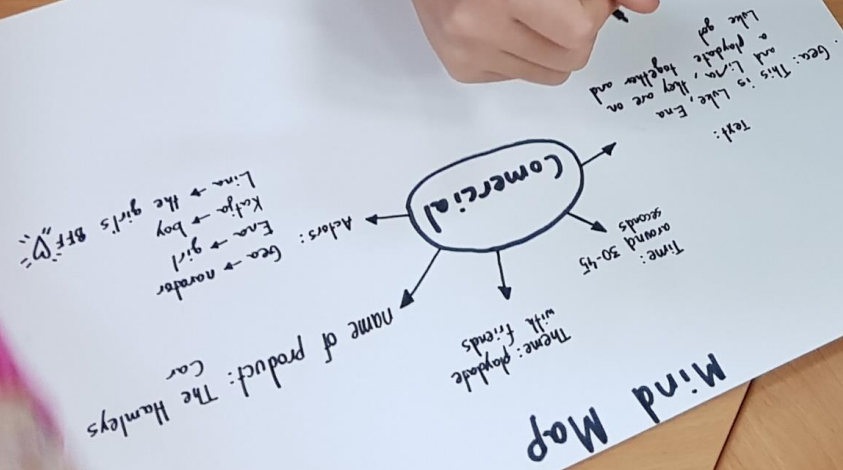 Mind Map
Comercial
Theme: playdate
with friends
Time:
around 30-45
seconds
name of product: The Hamleys
Car
Actors:
Gea → narator
Ena → girl
Katja → boy
Lina → the girl's BFF
Text:
Gea: This is Luke, Ena
and Lina, they are on
a playdate together and
Luke got